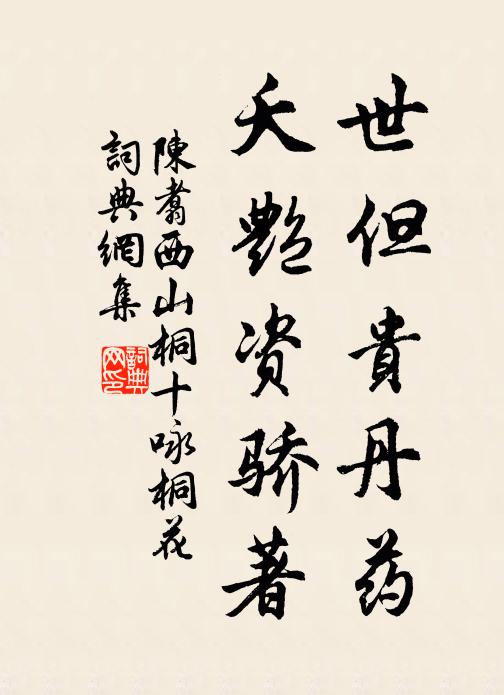 世但貴丹药
夭艷资骄著
陳翥西山桐十咏桐花
詞典網集
詞典网印